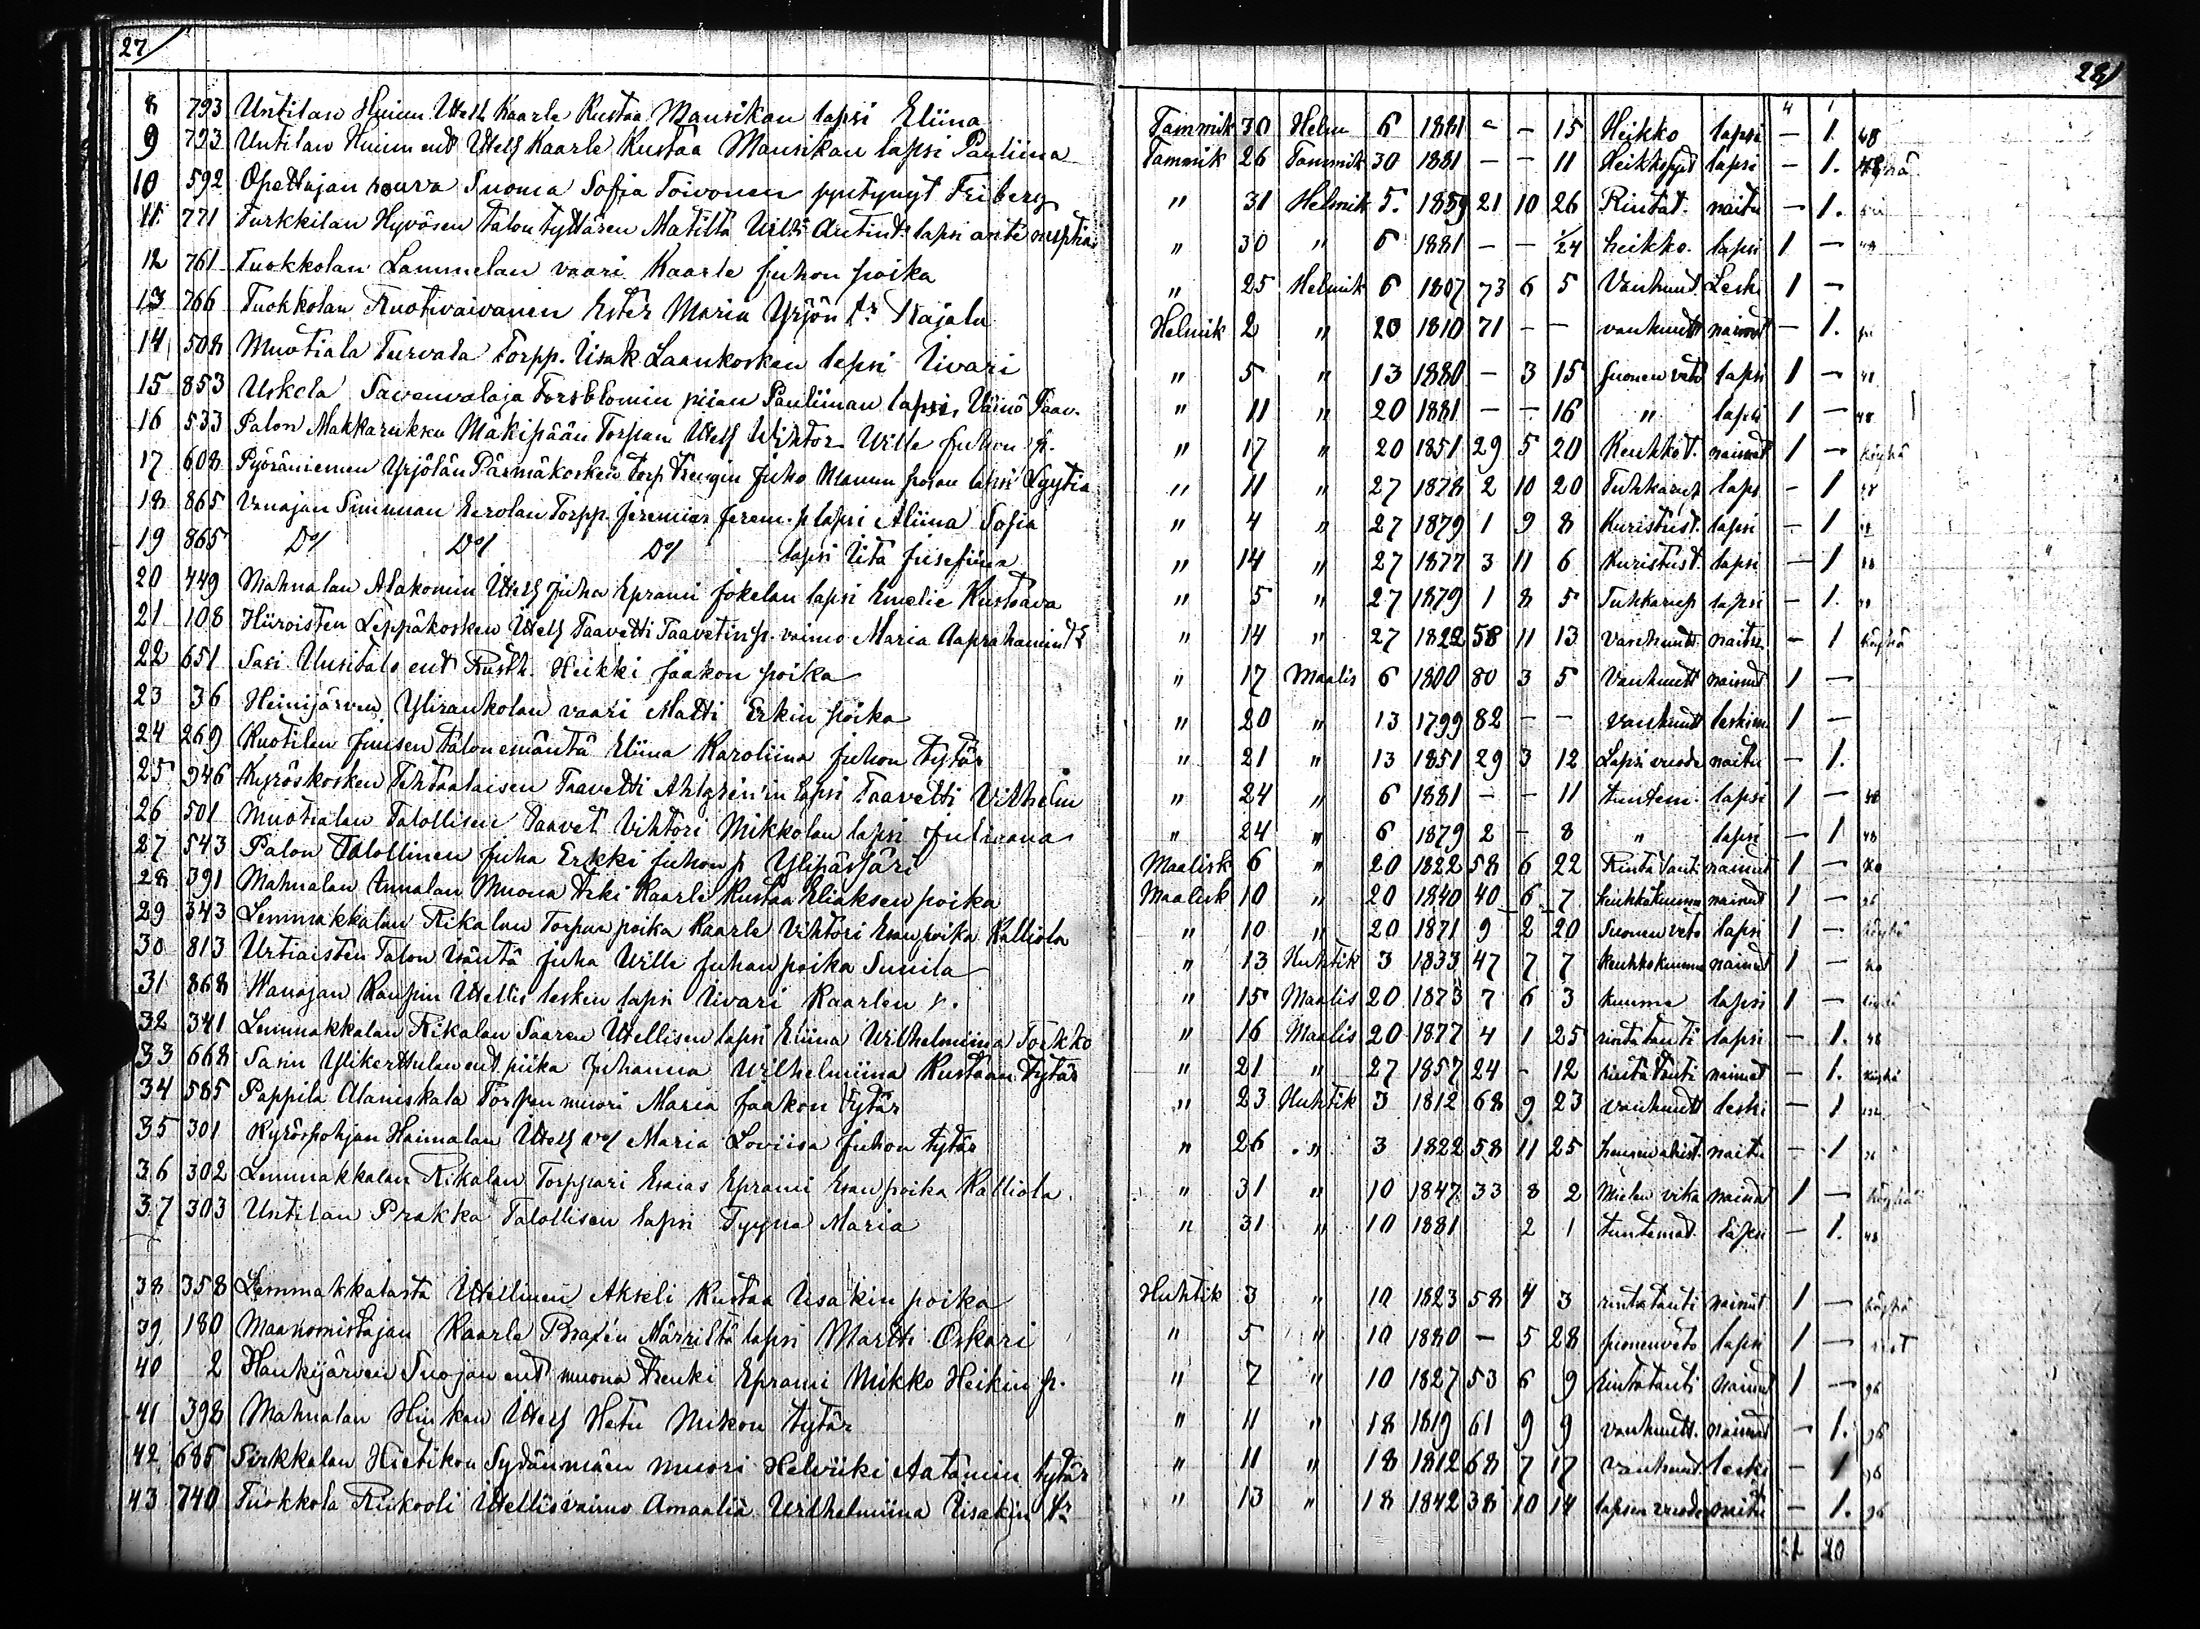 27
281
4 1
8 793 Untilan Hiirun Itell. Kaarle Kustaa Mansikan lapsi Eliina Tammik 30 Helm 6 1881 - - 15 Heikko lapsi - 1. 48
9 793 Untilan Hiirun ent Itell Kaarle Kustaa Mansikan lapsi Pauliina Tammik 26 Tammik 30 1881 - - 11 lapsi - 1.
10 592 Opettajan rouva Suoma Sofia Toivonen syntynyt Friberg " 31 Helmik 5. 1859 21 10 26 Rintat. naitu - 1.
11 771 Turkkilan Hyvösen talon tyttären Matilta lapsi ante nuptias " 30 " 6 1881 - - 1/24 heikko. lapsi 1 -
12 761 Tuokkolan Lammelan vaari Kaarle Juhon poika " 25 Helmik 6 1807 73 6 5 Vanhuud. Leski 1 -
13 766 Tuokkolan Ruotivaivanen Ester Maria Yrjön tr Rajala Helmik 2 " 20 1810 71 - - vanhuutt - 1.
14 508 Muotiala Turvala Torpp. Iisak Laankosken lapsi Iivari " 5 " 13 1880 - 3 15 suonen veto lapsi 1 - 48
15 853 Uskela Savenvalaja Forsblomin piian Pauliinan lapsi, Väinö Taav. " 11 " 20 1881 - - 16 " lapsi 1 - 48
16 533 Palon Makkaruksen Mäkipään Torpan Itell Wihtor Wille Juhon p. " 17 " 20 1851 29 5 20 Keuhkot. nainut 1 - köyhä
17 608 Pyöräniemen Yrjölän Pärmäkosken Torp Trengin Juho Manun pojan lapsi Lyytia " 11 " 27 1878 2 10 20 Tuhkarup laps - 1
18 865 Vanajan Simunan Eerolan Torpp. Jeremias Jerem. p lapsi Aliina Sofia " 4 " 27 1879 1 9 8 Kuristust. lapsi - 1
19 865 Do/ Do/ Do/ lapsi Iita Jusefiina " 14 " 27 1877 3 11 6 Kuristust. lapsi - 1
20 449 Mahnalan Alakomin Itell Juha Eprami Jokelan lapsi Emelie Kustaava " 5 " 27 1879 1 8 5 Tuhkarup lapsi - 1.
21 108 Hiiroisten Leppäkosken Itell Taavetti Taavetin p. vaimo Maria Aaprahamin " 14 " 27 1822 58 11 13 vanhuutt. naitu - 1 köyhä
22 651 Sasi Uusitalo ent Rusth. Heikki Jaakon poika " 17 Maalis 6 1800 80 3 5 Vanhuutt nainut 1 -
23 36 Heinijärven Ylirankolan vaari Matti Erkin poika " 20 " 13 1799 82 - - vanhuutt leskim 1 -
24 269 Kuotilan Juusen talon emäntä Eliina Karoliina Juhon tytär " 21 " 13 1851 29 3 12 Lapsi vuode naitu - 1.
25 946 Kyröskosken Tehtaalaisen Taavetti Ahlgrén'in lapsi Taavetti Vilhelm " 24 " 6 1881 - - 11 tuntem. lapsi 1 - 48
26 501 Muotialan Talollisen Taavet Vihtori Mikkolan lapsi Juliaana " 24 " 6 1879 2 - 8 " lapsi - 1 48
27 543 Palon Talollinen Juha Erkki Juhon p Ylipäsjäri Maalisk 6 " 20 1822 58 6 22 Rinta taut. nainut 1 -
28 391 Mahnalan Annalan Muona trki Kaarle Kustaa Eliaksen poika Maalisk 10 " 20 1840 40 6 7 keuhkokuume nainut 1 - 96
29 343 Lemmakkalan Rikalan Torpan poika Kaarle Vihtori Esan poika Kalliola " 10 " 20 1871 9 2 20 Suonenveto lapsi 1 - köyhä
30 813 Urtiaisten Talon isäntä Juha Wille Juhan poika Sunila " 13 Huhtik 3 1833 47 7 7 keuhkokuume nainut 1 -
31 868 Wanajan Kaupin Itellis lesken lapsi Iivari Kaarlen p. " 15 Maalis 20 1873 7 6 3 kuume lapsi 1 -
32 341 Lemmakkalan Rikalan Saaren Itellisen lapsi Eliina Wilhelmiina Torkko " 16 Maalis 20 1877 4 1 25 rintatauti lapsi - 1. 48
33 668 Sasin Ylikerttulan ent. piika Juhanna Wilhelmiina Kustaan Tytär " 21 " 27 1857 24 - 12 rintatauti naimat - 1. köyhä
34 585 Pappila Alaniskala Torpan muori Maria Jaakon Tytär " 23 Huhtik 3 1812 68 9 23 vanhuutt leski - 1
35 301 Kyröspohjan Haimalan Itell vo/ Maria Loviisa Juhon tytär " 26 " 3 1822 58 11 25 naitu - 1
36 302 Lemmakkalan Rikalan Torppari Esaias Eprami Esan poika Kalliola. " 31 " 10 1847 33 8 2 Mielen vika nainut 1 - köyhä
37 303 Untilan Prakka Talollisen lapsi Tyyna Maria " 31 " 10 1881 2 1 tuntemat. lapsi - 1. 48
38 358 Lemmakkalasta Itellinen Akseli Kustaa Iisakin poika Huhtik 3 " 10 1823 58 4 3 rintatauti nainut 1 - köyhä
39 180 Maanomistajan Kaarle Braxén Närriltä lapsi Martti Oskari " 5 " 10 1880 - 5 28 suonenveto lapsi 1 -
40 2 Haukijärven Suojan ent muona trenki Eprami Mikko Heikin p. " 7 " 10 1827 53 6 9 Rintatauti nainut 1 - 96
41 398 Mahnalan Hiukan Itell Hetu Mikon tytär " 11 " 18 1819 61 9 9 vanhuutt. naimat - 1. 96
42 685 Sirkkalan Hietikon Sydänmäen muori Helviiki Aatamin tytär " 11 " 18 1812 68 7 17 vanhuut. leski - 1 96
43 740 Tuokkola Riikooli Itellisvaimo Amaalia Wilhelmiina Iisakin tr " 13 " 18 1842 38 10 14 lapsen vuode naitu - 1. 96
21 20